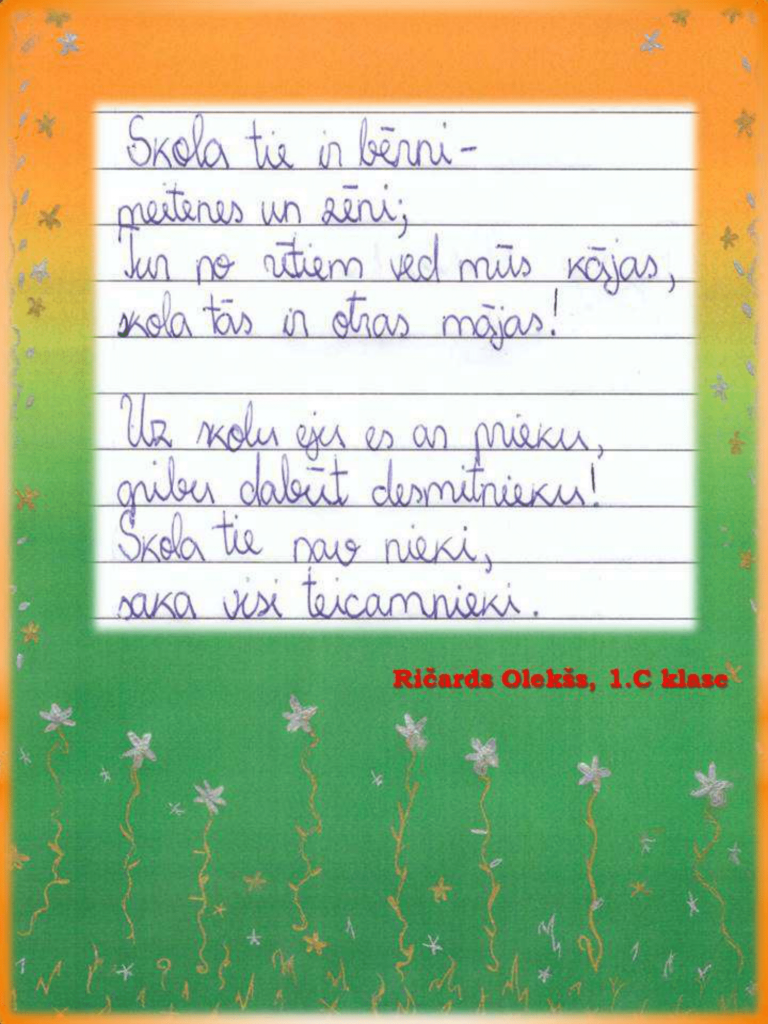 Skola tie ir bērni-
meitenes un zēni;
Tur no rītiem ved mūs kājas,
skola tās ir otras mājas!
Uz skolu eju es ar prieku,
gribu dabūt desmitnieku!
Skola tie nav nieki,
saka visi teicamnieki.
Ričards Olekšs, 1.C klase